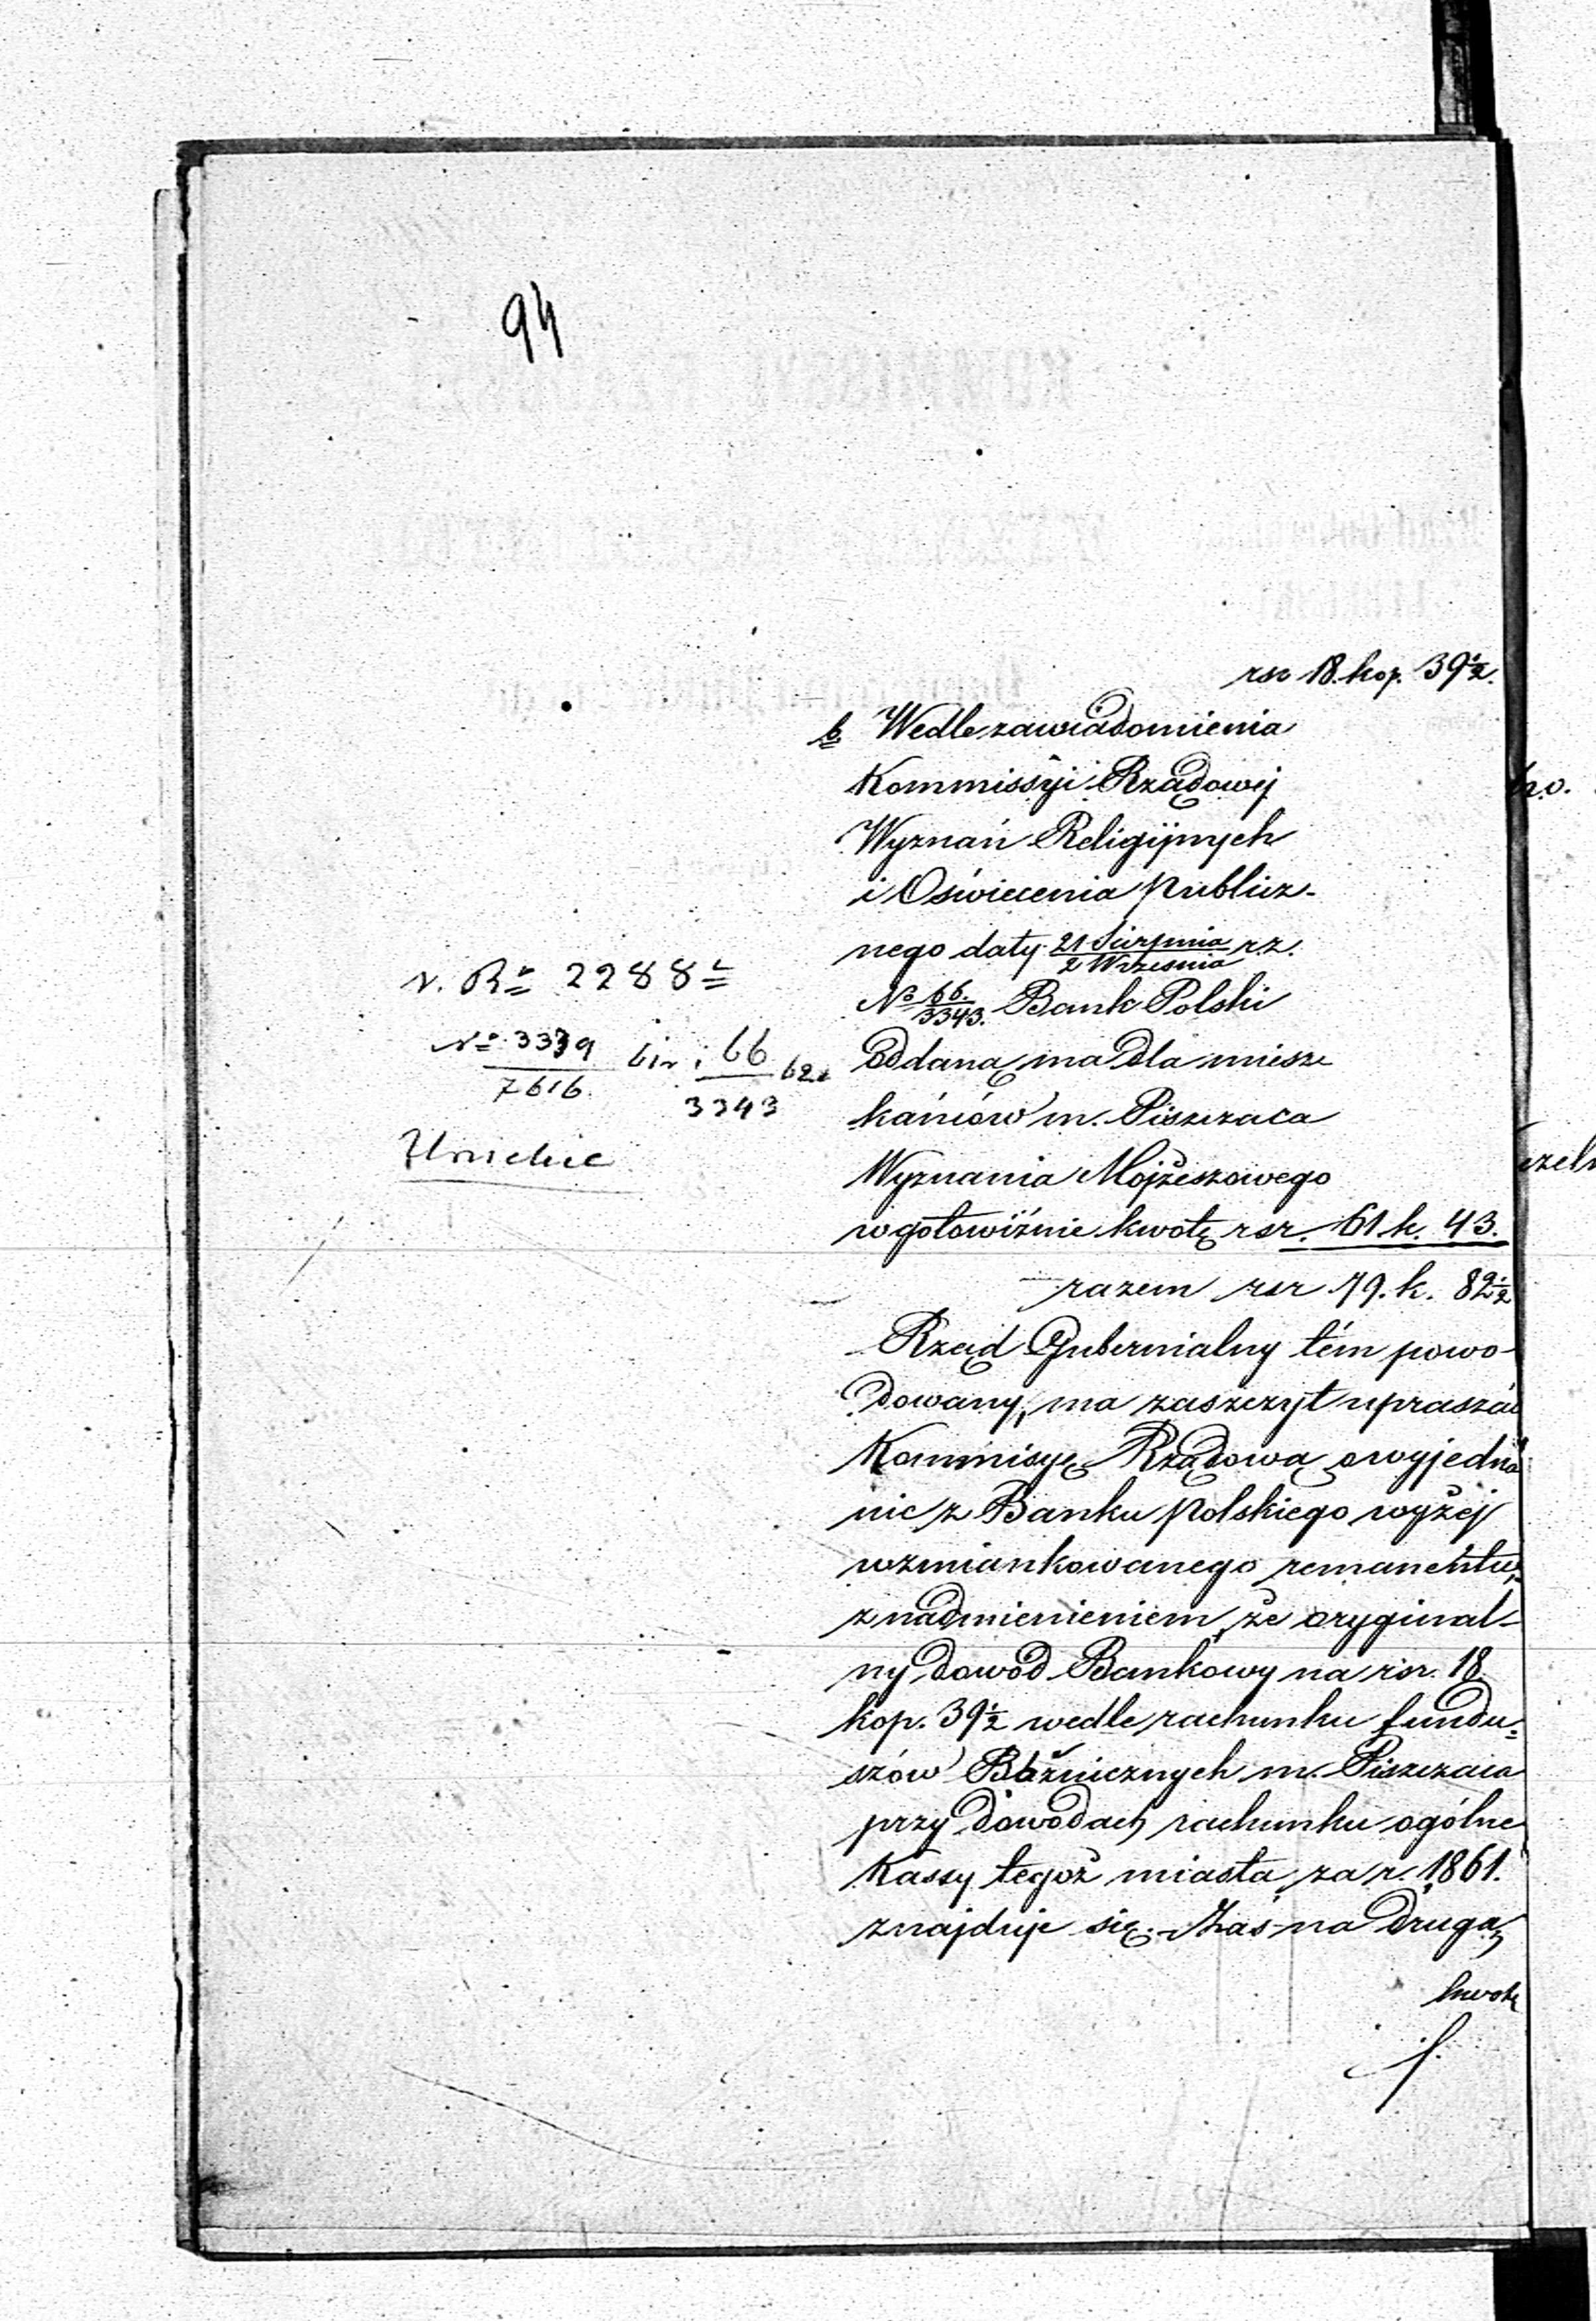 94
rsr 18. kop. 39½.
b Wedle zawiadomienia
Kommissyi Rządowej
Wyznań Religijnych
i Oświecenia publicz-
nego daty 21 Sierpnia / 2 Września r.z.
№ 66. / 3343. Bank Polski
oddaną ma dla miesz
kańców m. Piszczaca
Wyznania Mojżeszowego
w gotowiźnie kwotę rsr. 61 k. 43.
razem rsr 79. k. 82½
Rząd Gubernialny tém powo-
dowany, ma zaszczyt upraszać
Kommisyę Rządową o wyjedna
nie z Banku polskiego wyżej
wzmiankowanego remanentu,
z nadmienieniem, że oryginal-
ny dowód Bankowy na rsr. 18
kop. 39½ wedle rachunku fundu-
szów Bóżnicznych m. Piszczaca
przy dowodach rachunku ogólne
Kassy tegoż miasta za r. 1861.
znajduje się. Zaś na drugą
kwotę
v. R 2288
№ 3339 / 7616 61 r. i 66 / 3343 62.